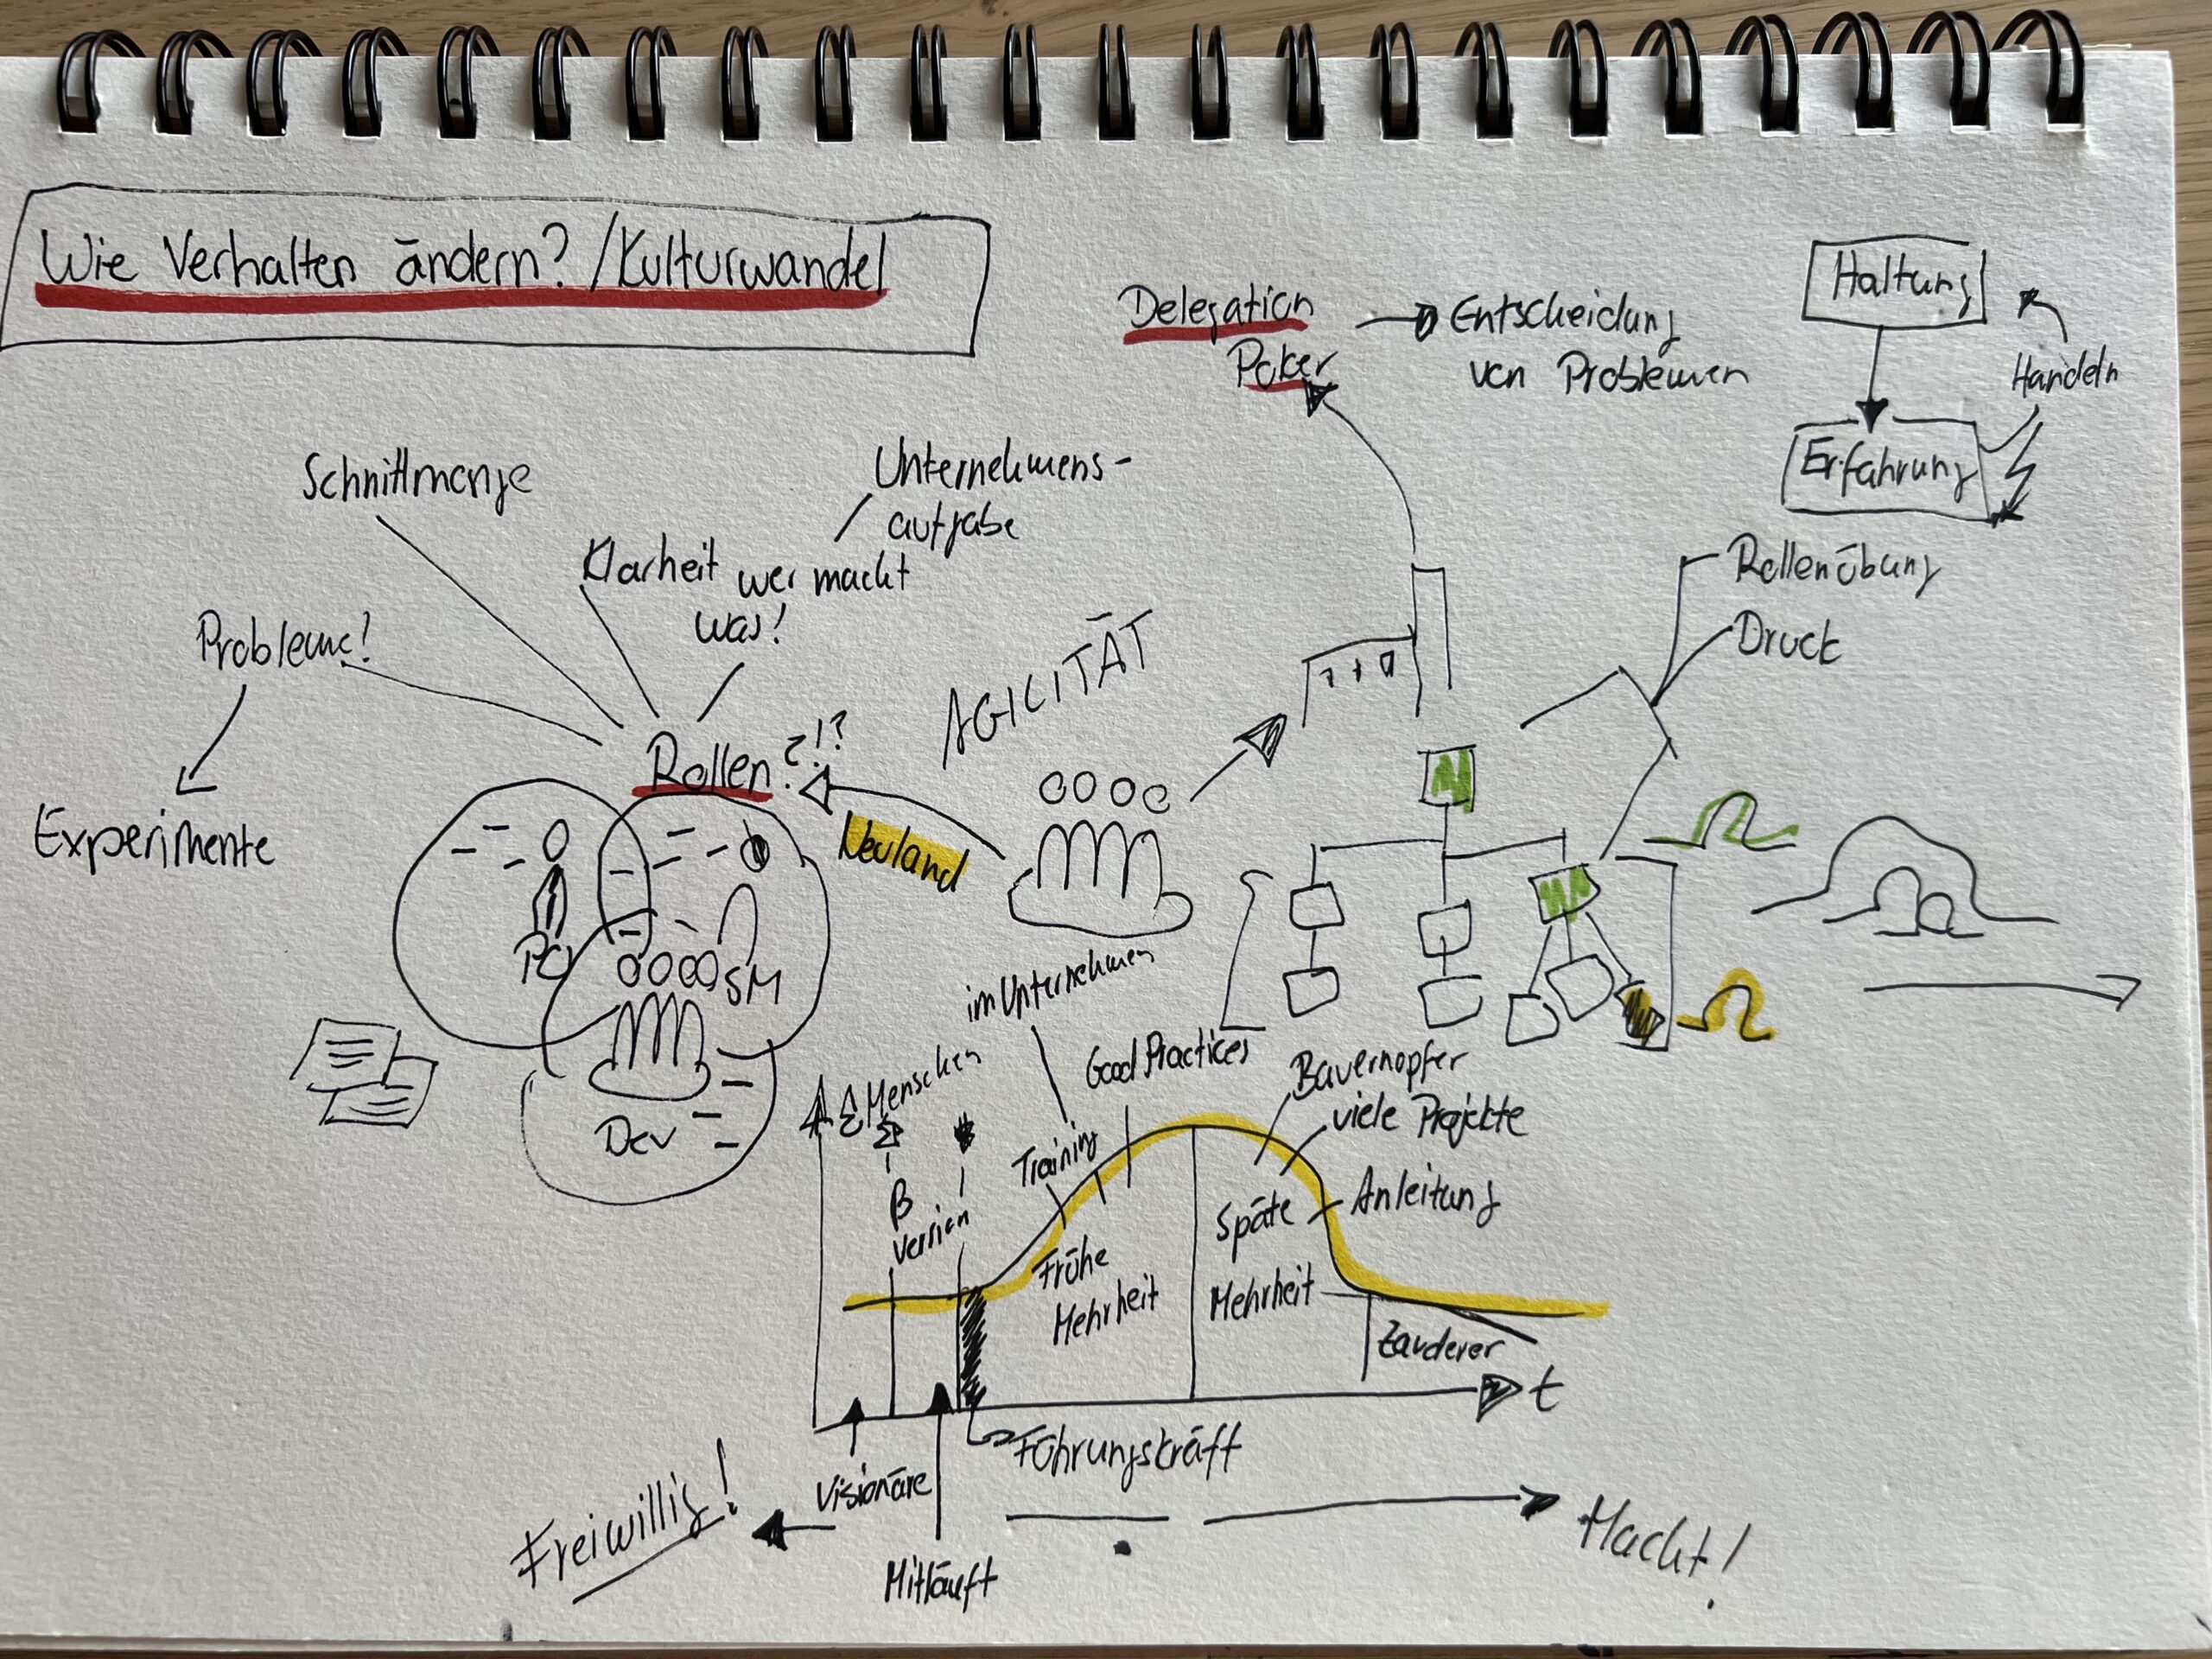 Wie Verhalten ändern? / Kulturwandel
Delegation
Poker
Entscheidung
von Problemen
Haltung
Handeln
Erfahrung
Schnittmenge
Unternehmens-
aufgabe
Klarheit wer macht
was!
Probleme!
Experimente
Rollen?!?
AGILITÄT
Neuland
Rollenübung
Druck
PO
SM
Dev
im Unternehmen
Good Practices
Menschen
Training
β
Version
Bauernopfer
viele Projekte
Anleitung
Frühe
Mehrheit
Späte
Mehrheit
Zauderer
t
Führungskräft
Visionäre
Mitläuft
Freiwillig!
Macht!